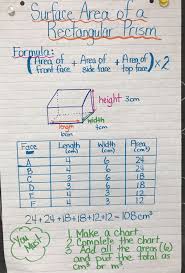 Surface Area of a
Rectangular Prism
Formula:
(Area of front face + Area of side face + Area of top face) × 2
height 3cm
length 6cm
width 4cm
Face Length (cm) Width (cm) Area (cm²)
A 4 6 24
B 4 6 24
C 3 6 18
D 3 6 18
E 4 3 12
F 4 3 12
24+24+18+18+12+12=108cm²
You Must:
1. Make a chart.
2. Complete the chart.
3. Add all the areas (6)
and put the total as
cm² or m².